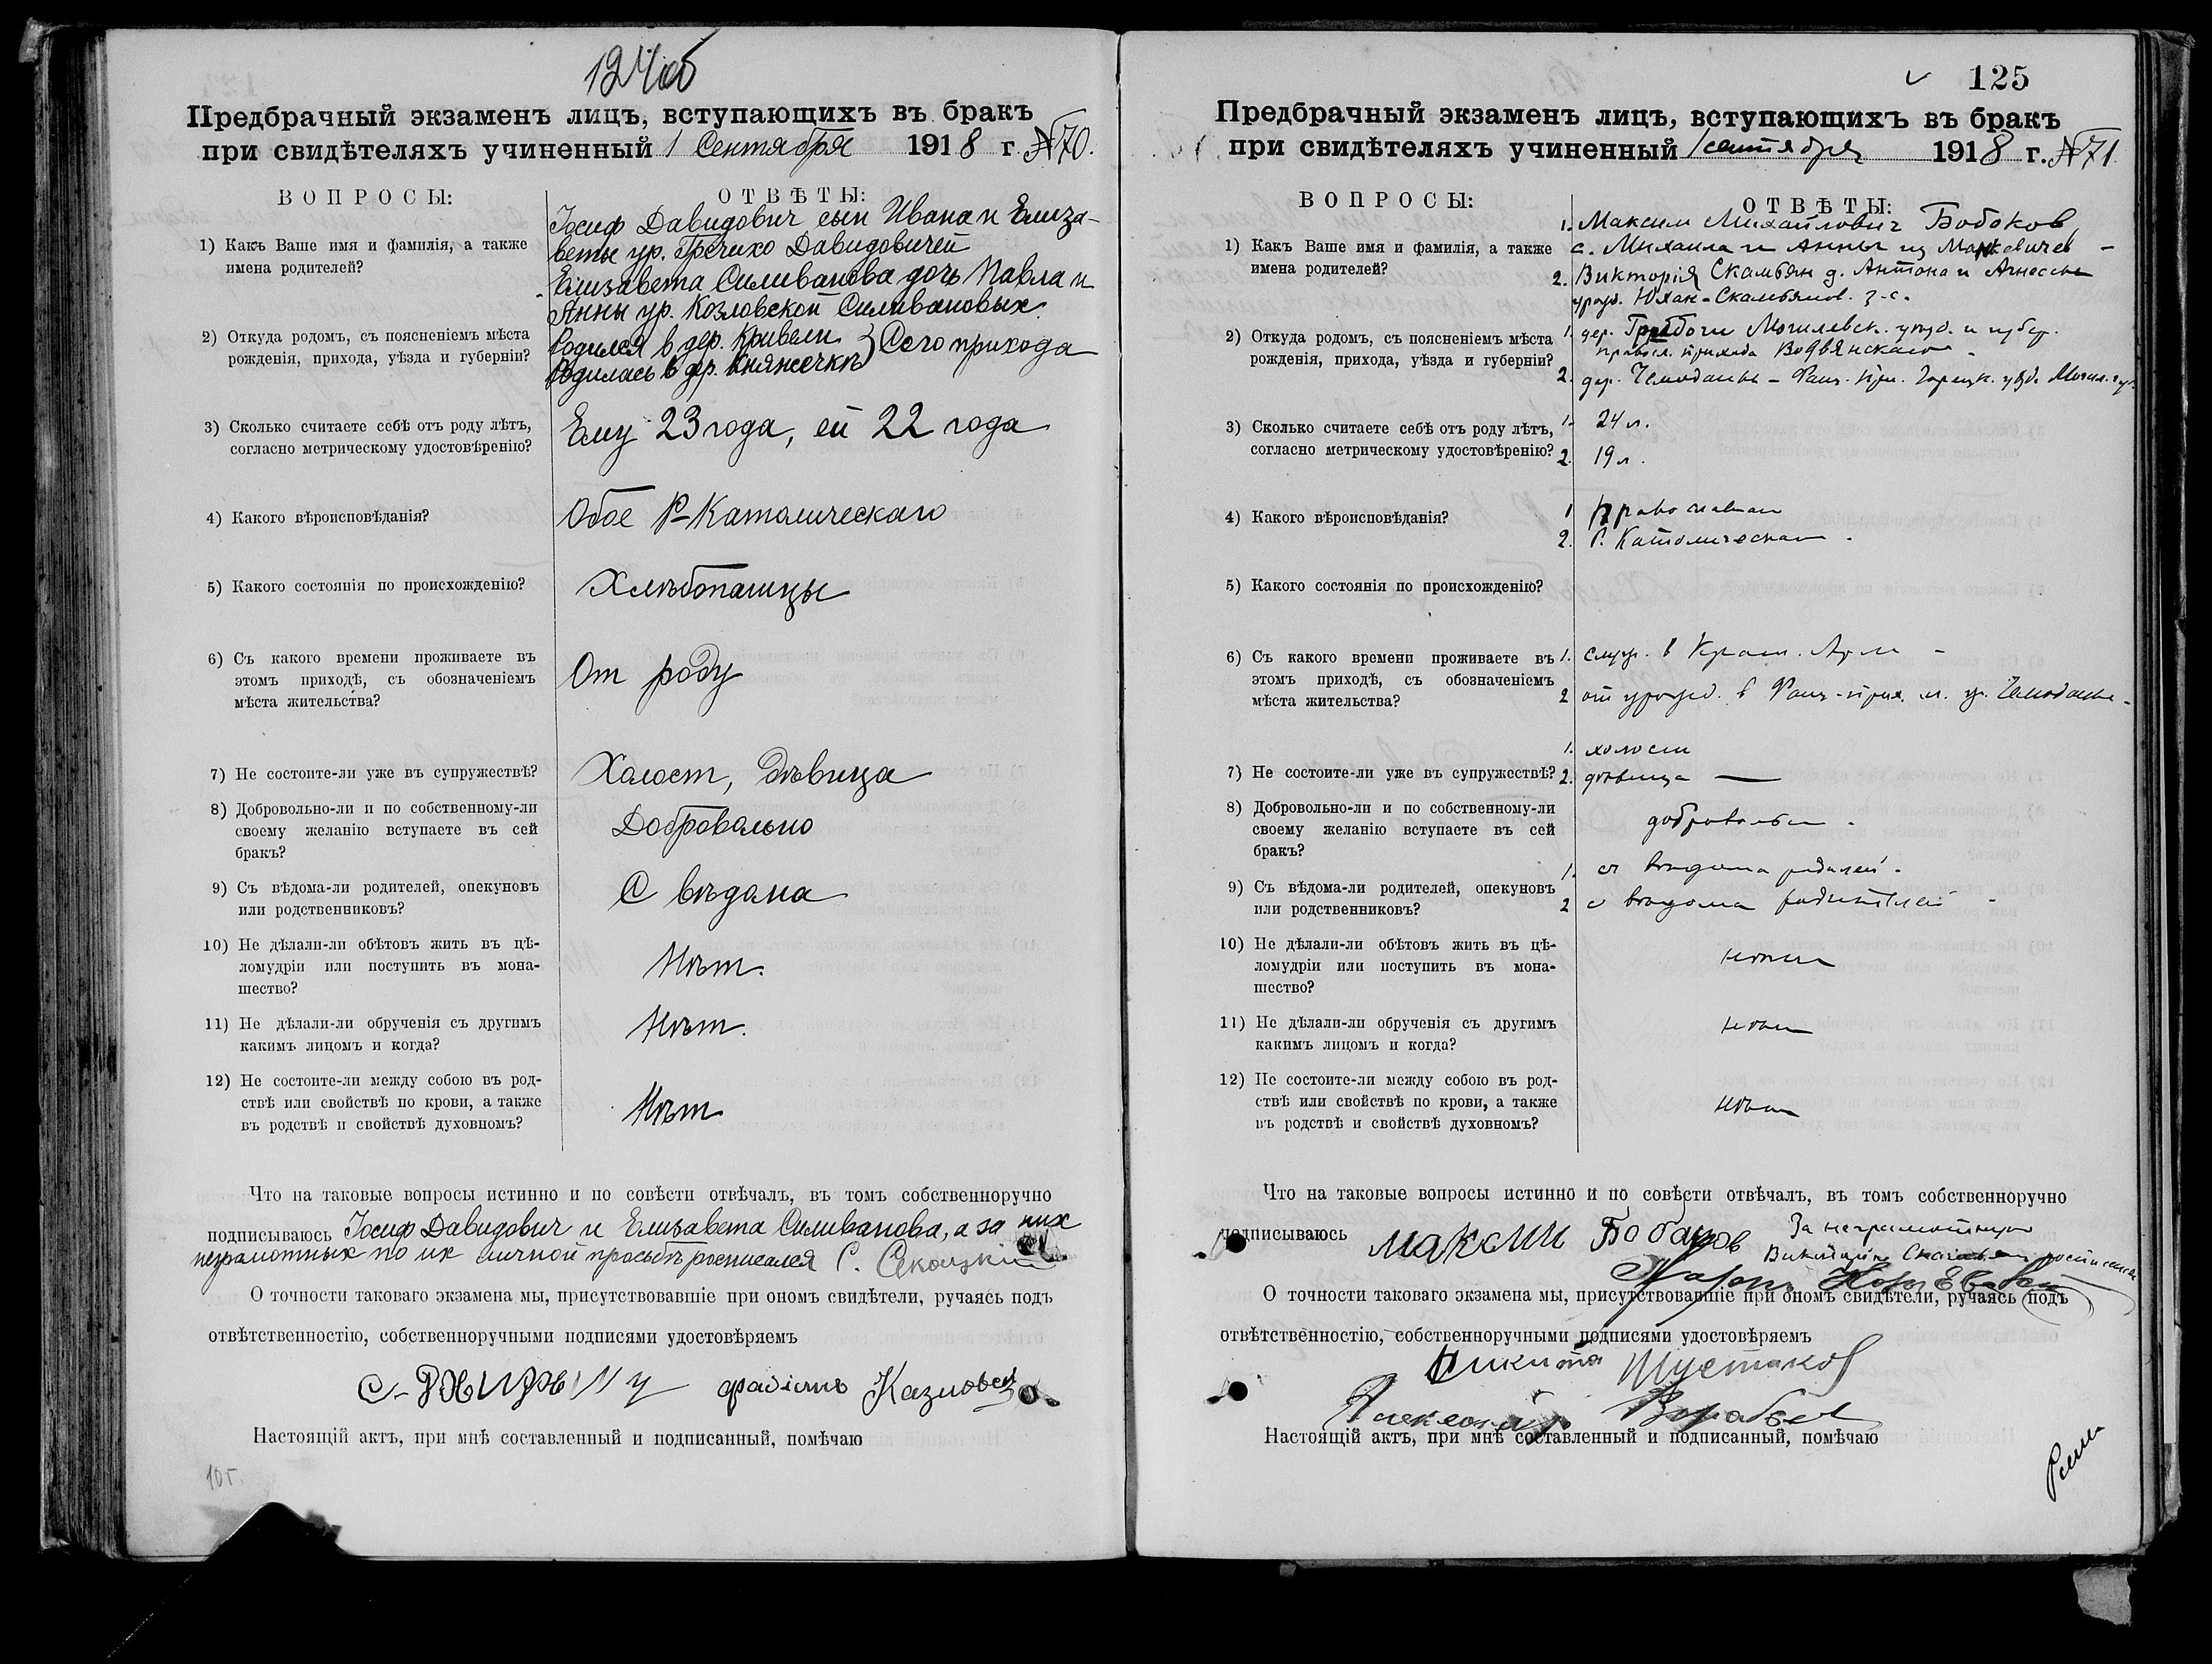 124об
Предбрачный экзаменъ лицъ, вступающихъ въ бракъ
при свидѣтеляхъ учиненный 1 Сентября 1918 г. №70.
ВОПРОСЫ:
ОТВѢТЫ:
1) Какъ Ваше имя и фамилія, а также
имена родителей?
Іосиф Давидович сын Ивана и Елиза-
веты ур. Гречихо Давидовичей
Елизавета Силиванова дочь Павла и
Анны ур. Козловской Силивановых.
2) Откуда родомъ, съ поясненіемъ мѣста
рожденія, прихода, уѣзда и губерніи?
Родился в дер. Кривели } Сего прихода
Родилась в дер. Княжечки
3) Сколько считаете себѣ отъ роду лѣтъ,
согласно метрическому удостовѣренію?
Ему 23 года, ей 22 года
4) Какого вѣроисповѣданія?
Обое Р-Католическаго
5) Какого состоянія по происхожденію?
Хлѣбопашцы
6) Съ какого времени проживаете въ
этомъ приходѣ, съ обозначеніемъ
мѣста жительства?
От роду
7) Не состоите-ли уже въ супружествѣ?
Холост, дѣвица
8) Добровольно-ли и по собственному-ли
своему желанію вступаете въ сей
бракъ?
Добровольно
9) Съ вѣдома-ли родителей, опекуновъ
или родственниковъ?
С вѣдома
10) Не дѣлали-ли обѣтовъ жить въ цѣ-
ломудріи или поступить въ мона-
шество?
Нѣт.
11) Не дѣлали-ли обрученія съ другимъ
какимъ лицомъ и когда?
Нѣт.
12) Не состоите-ли между собою въ род-
ствѣ или свойствѣ по крови, а также
въ родствѣ и свойствѣ духовномъ?
Нѣт
Что на таковые вопросы истинно и по совѣсти отвѣчалъ, въ томъ собственноручно
подписываюсь Іосиф Давидович и Елизавета Силиванова, а за них
неграмотных по их личной просьбѣ росписался С.
О точности таковаго экзамена мы, присутствовавшіе при ономъ свидѣтели, ручаясь подъ
отвѣтственностію, собственноручными подписями удостовѣряемъ
Настоящій актъ, при мнѣ составленный и подписанный, помѣчаю
10 г.
125
Предбрачный экзаменъ лицъ, вступающихъ въ бракъ
при свидѣтеляхъ учиненный 1 сентября 1918 г. №71.
ВОПРОСЫ:
ОТВѢТЫ:
1) Какъ Ваше имя и фамилія, а также
имена родителей?
1. Максим Михайлович Бобоков
с. Михаила и Анны из
2. Викторія Скамбян д. Антона и Агнессы
2) Откуда родомъ, съ поясненіемъ мѣста
рожденія, прихода, уѣзда и губерніи?
1. дер. Могилевск. уѣзд. и губер.
правосл. прихода
2. дер. Чемоданы - Фащ. при. Горецк. уѣзд. Могил. губ.
3) Сколько считаете себѣ отъ роду лѣтъ,
согласно метрическому удостовѣренію?
1. 24 л.
2. 19 л.
4) Какого вѣроисповѣданія?
1 православн
2. Р. Католическаго.
5) Какого состоянія по происхожденію?
6) Съ какого времени проживаете въ
этомъ приходѣ, съ обозначеніемъ
мѣста жительства?
1. служ. в Красн. Арм -
2 от урожд. в Фащ-прих. Чемоданы -
7) Не состоите-ли уже въ супружествѣ?
1. холост
2. дѣвица
8) Добровольно-ли и по собственному-ли
своему желанію вступаете въ сей
бракъ?
добровольн.
9) Съ вѣдома-ли родителей, опекуновъ
или родственниковъ?
1. с вѣдома родителей.
2 с вѣдома родителей
10) Не дѣлали-ли обѣтовъ жить въ цѣ-
ломудріи или поступить въ мона-
шество?
нѣт
11) Не дѣлали-ли обрученія съ другимъ
какимъ лицомъ и когда?
нѣт
12) Не состоите-ли между собою въ род-
ствѣ или свойствѣ по крови, а также
въ родствѣ и свойствѣ духовномъ?
нѣт
Что на таковые вопросы истинно и по совѣсти отвѣчалъ, въ томъ собственноручно
подписываюсь Максим За неграмотную
О точности таковаго экзамена мы, присутствовавшіе при ономъ свидѣтели, ручаясь подъ
отвѣтственностію, собственноручными подписями удостовѣряемъ
Никита Шустаков
Алексей Воробьев
Настоящій актъ, при мнѣ составленный и подписанный, помѣчаю